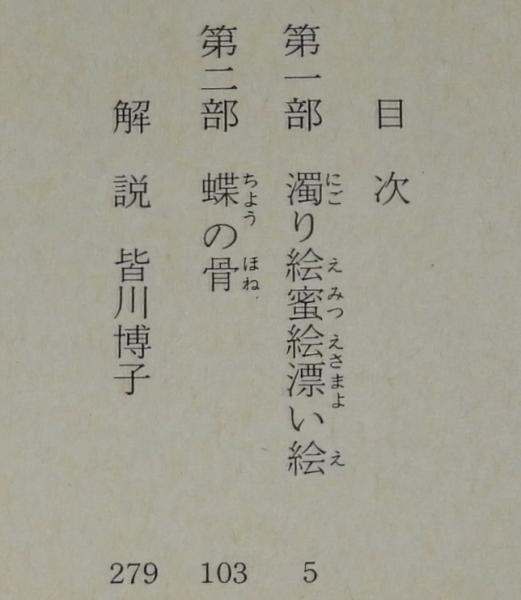 目次
第一部 濁り絵蜜絵漂い絵 5
にご え みつ えさまよ え
第二部 蝶の骨 103
ちよう ほね
解説 皆川博子 279